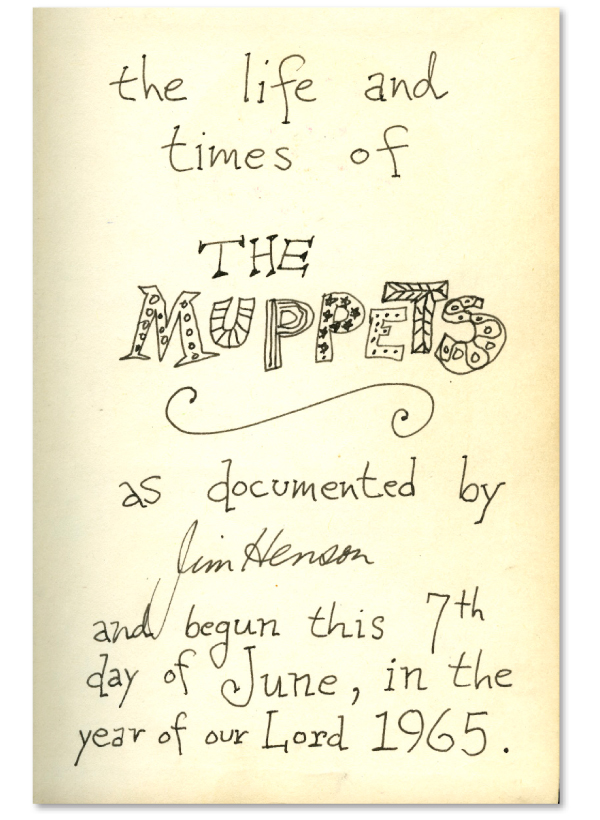 the life and
times of
THE
MUPPETS
as documented by
Jim Henson
and begun this 7th
day of June, in the
year of our Lord 1965.